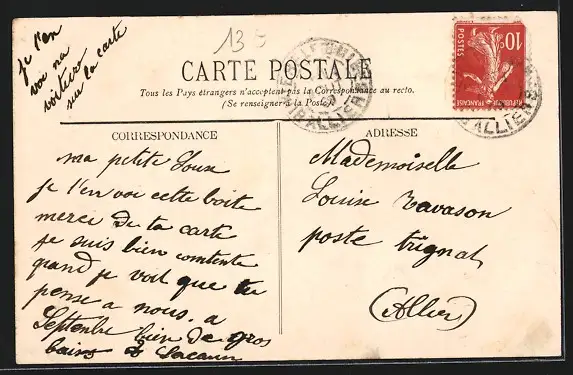 je t'en
voi na
voiture
sur la carte
13
CARTE POSTALE
Tous les Pays étrangers n'acceptent pas la Correspondance au recto.
(Se renseigner à la Poste)
POSTES
10c
REPUBLIQUE FRANÇAISE
ALLIER
ALLIER
CORRESPONDANCE
ma petite
je t'en voi cette boite
merci de ta carte
je suis bien comtente
quand je voit que tu
pense a nous. a
Septenbre bien de gros
baise
ADRESSE
Mademoiselle
Louise Ravason
poste trignat
(Allier)